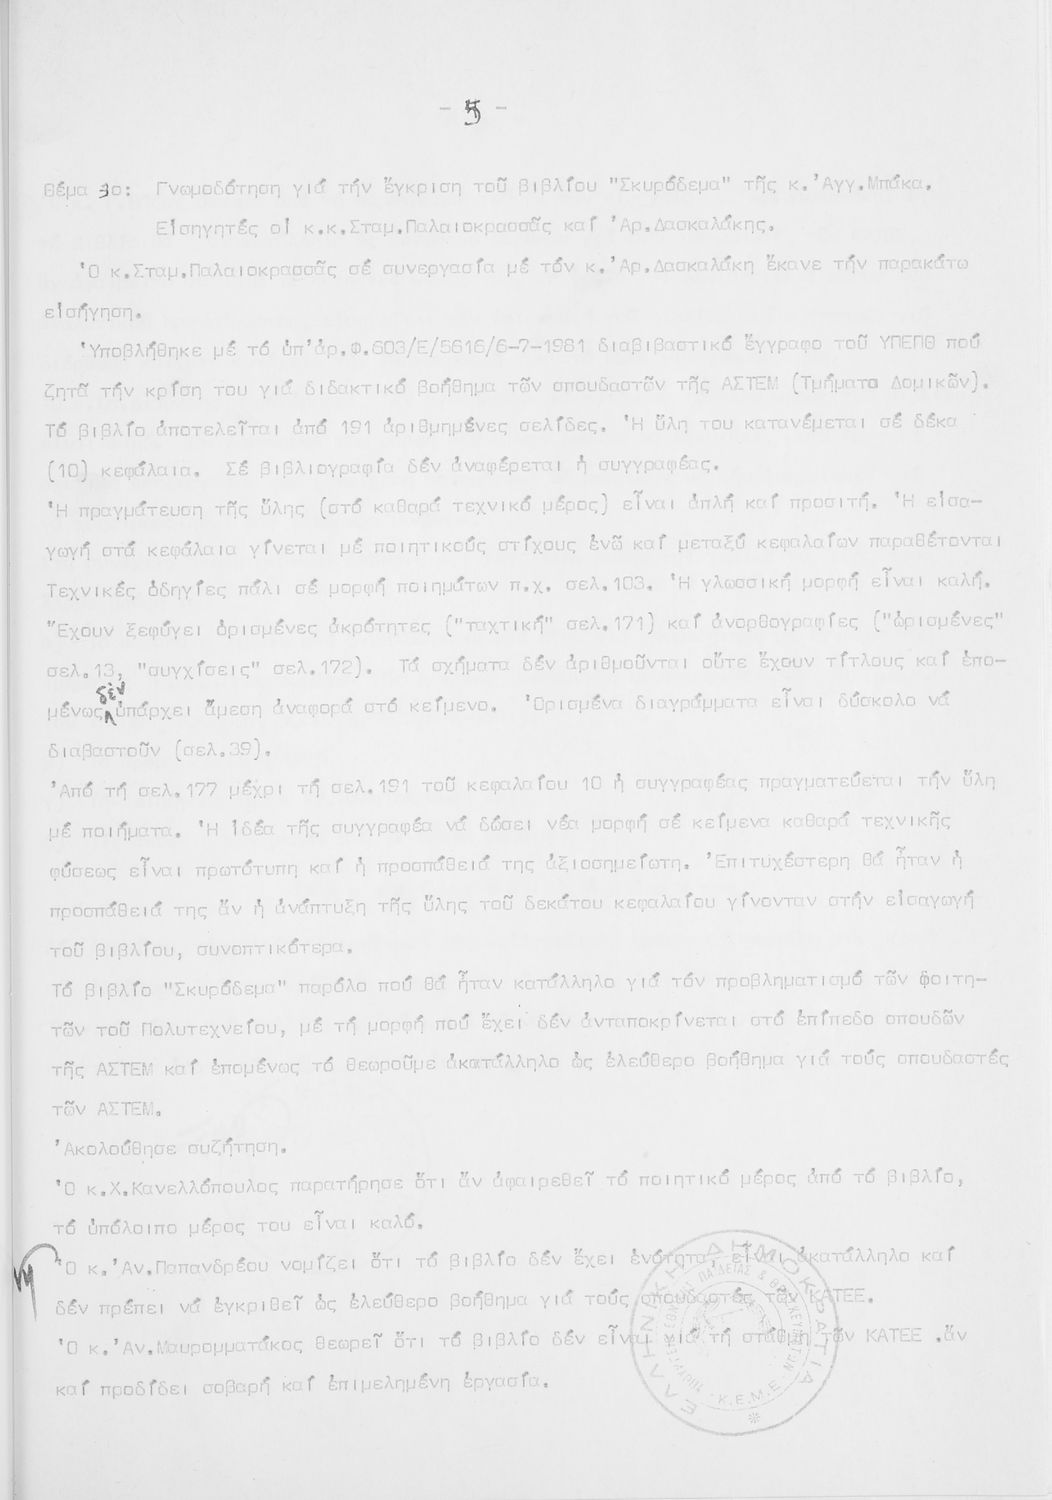 - 5 -
Θέμα 3ο: Γνωμοδότηση γιά τήν ἔγκριση τοῦ βιβλίου "Σκυρόδεμα" τῆς κ.'Αγγ.Μπάκα.
Εἰσηγητές οἱ κ.κ.Σταμ.Παλαιοκρασσᾶς καί 'Αρ.Δασκαλάκης.
'Ο κ.Σταμ.Παλαιοκρασσᾶς σέ συνεργασία μέ τόν κ.'Αρ.Δασκαλάκη ἔκανε τήν παρακάτω
εἰσήγηση.
'Υποβλήθηκε μέ τό ὑπ'ἀρ.Φ.603/Ε/5616/6-7-1981 διαβιβαστικό ἔγγραφο τοῦ ΥΠΕΠΘ πού
ζητᾶ τήν κρίση του γιά διδακτικό βοήθημα τῶν σπουδαστῶν τῆς ΑΣΤΕΜ (Τμήματα Δομικῶν).
Τό βιβλίο ἀποτελεῖται ἀπό 191 ἀριθμημένες σελίδες. 'Η ὕλη του κατανέμεται σέ δέκα
(10) κεφάλαια. Σέ βιβλιογραφία δέν ἀναφέρεται ἡ συγγραφέας.
'Η πραγμάτευση τῆς ὕλης (στό καθαρά τεχνικό μέρος) εἶναι ἁπλή καί προσιτή. 'Η εἰσα-
γωγή στά κεφάλαια γίνεται μέ ποιητικούς στίχους ἐνῶ καί μεταξύ κεφαλαίων παραθέτονται
Τεχνικές ὁδηγίες πάλι σέ μορφή ποιημάτων π.χ. σελ.103. 'Η γλωσσική μορφή εἶναι καλή.
"Εχουν ξεφύγει ὁρισμένες ἀκρότητες ("ταχτική" σελ.171) καί ἀνορθογραφίες ("ὡρισμένες"
σελ.13, "συγχίσεις" σελ.172). Τά σχήματα δέν ἀριθμοῦνται οὔτε ἔχουν τίτλους καί ἑπο-
μένως δέν ὑπάρχει ἄμεση ἀναφορά στό κείμενο. 'Ορισμένα διαγράμματα εἶναι δύσκολο νά
διαβαστοῦν (σελ.39).
'Από τή σελ.177 μέχρι τή σελ.191 τοῦ κεφαλαίου 10 ἡ συγγραφέας πραγματεύεται τήν ὕλη
μέ ποιήματα. 'Η ἰδέα τῆς συγγραφέα νά δώσει νέα μορφή σέ κείμενα καθαρά τεχνικῆς
φύσεως εἶναι πρωτότυπη καί ἡ προσπάθειά της ἀξιοσημείωτη. 'Επιτυχέστερη θά ἦταν ἡ
προσπάθειά της ἄν ἡ ἀνάπτυξη τῆς ὕλης τοῦ δεκάτου κεφαλαίου γίνονταν στήν εἰσαγωγή
τοῦ βιβλίου, συνοπτικότερα.
Τό βιβλίο "Σκυρόδεμα" παρόλο πού θά ἦταν κατάλληλο γιά τόν προβληματισμό τῶν φοιτη-
τῶν τοῦ Πολυτεχνείου, μέ τή μορφή πού ἔχει δέν ἀνταποκρίνεται στό ἐπίπεδο σπουδῶν
τῆς ΑΣΤΕΜ καί ἑπομένως τό θεωροῦμε ἀκατάλληλο ὡς ἐλεύθερο βοήθημα γιά τούς σπουδαστές
τῶν ΑΣΤΕΜ.
'Ακολούθησε συζήτηση.
'Ο κ.Χ.Κανελλόπουλος παρατήρησε ὅτι ἄν ἀφαιρεθεῖ τό ποιητικό μέρος ἀπό τό βιβλίο,
τό ὑπόλοιπο μέρος του εἶναι καλό.
'Ο κ.'Αν.Παπανδρέου νομίζει ὅτι τό βιβλίο δέν ἔχει ἑνότητα, εἶναι ἀκατάλληλο καί
δέν πρέπει νά ἐγκριθεῖ ὡς ἐλεύθερο βοήθημα γιά τούς σπουδαστές τῶν ΚΑΤΕΕ.
'Ο κ.'Αν.Μαυρομματάκος θεωρεῖ ὅτι τό βιβλίο δέν εἶναι γιά τή στάθμη τῶν ΚΑΤΕΕ .ἄν
καί προδίδει σοβαρή καί ἐπιμελημένη ἐργασία.
ΕΛΛΗΝΙΚΗ ΔΗΜΟΚΡΑΤΙΑ
ΥΠΟΥΡΓΕΙΟ ΕΘΝΙΚΗΣ ΠΑΙΔΕΙΑΣ & ΘΡΗΣΚΕΥΜΑΤΩΝ
Κ.Ε.Μ.Ε.